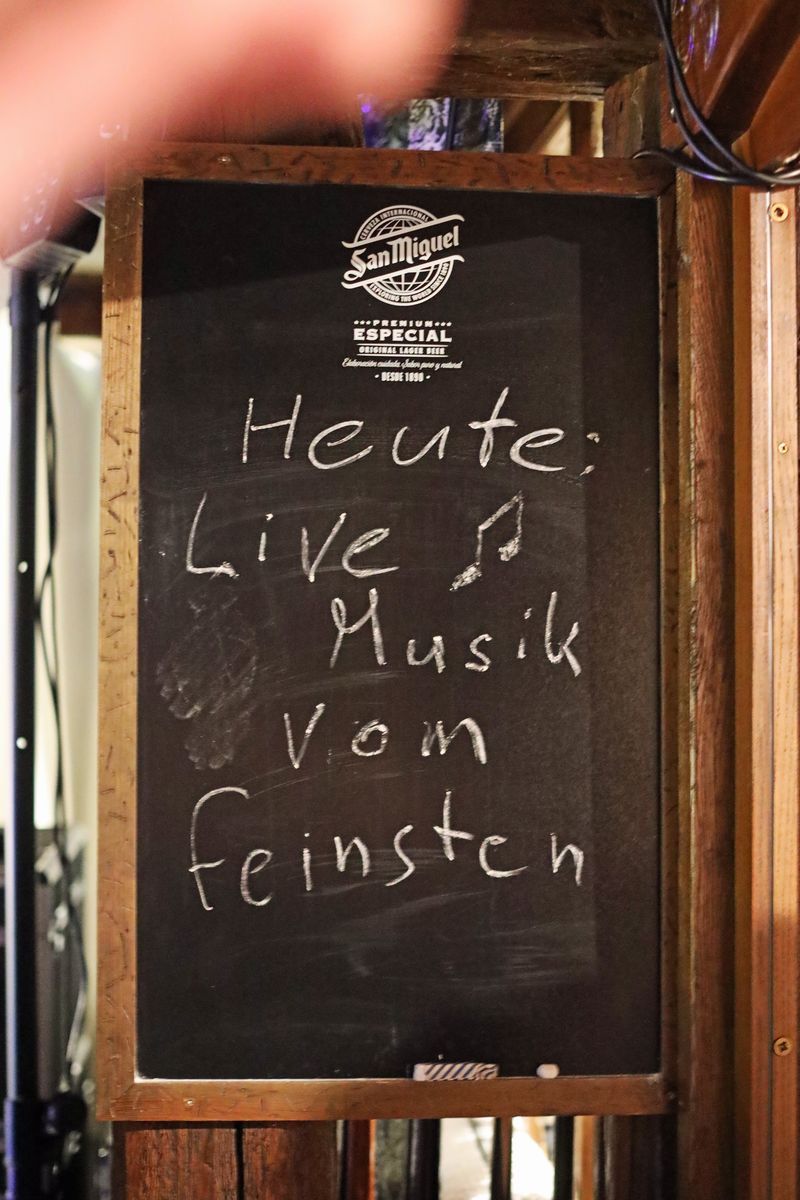 CERVEZA INTERNACIONAL
San Miguel
EXPLORING THE WORLD SINCE 1890
PREMIUM
ESPECIAL
ORIGINAL LAGER BEER
Elaboración cuidada. Sabor puro y natural
- DESDE 1890 -
Heute:
Live
Musik
vom
feinsten